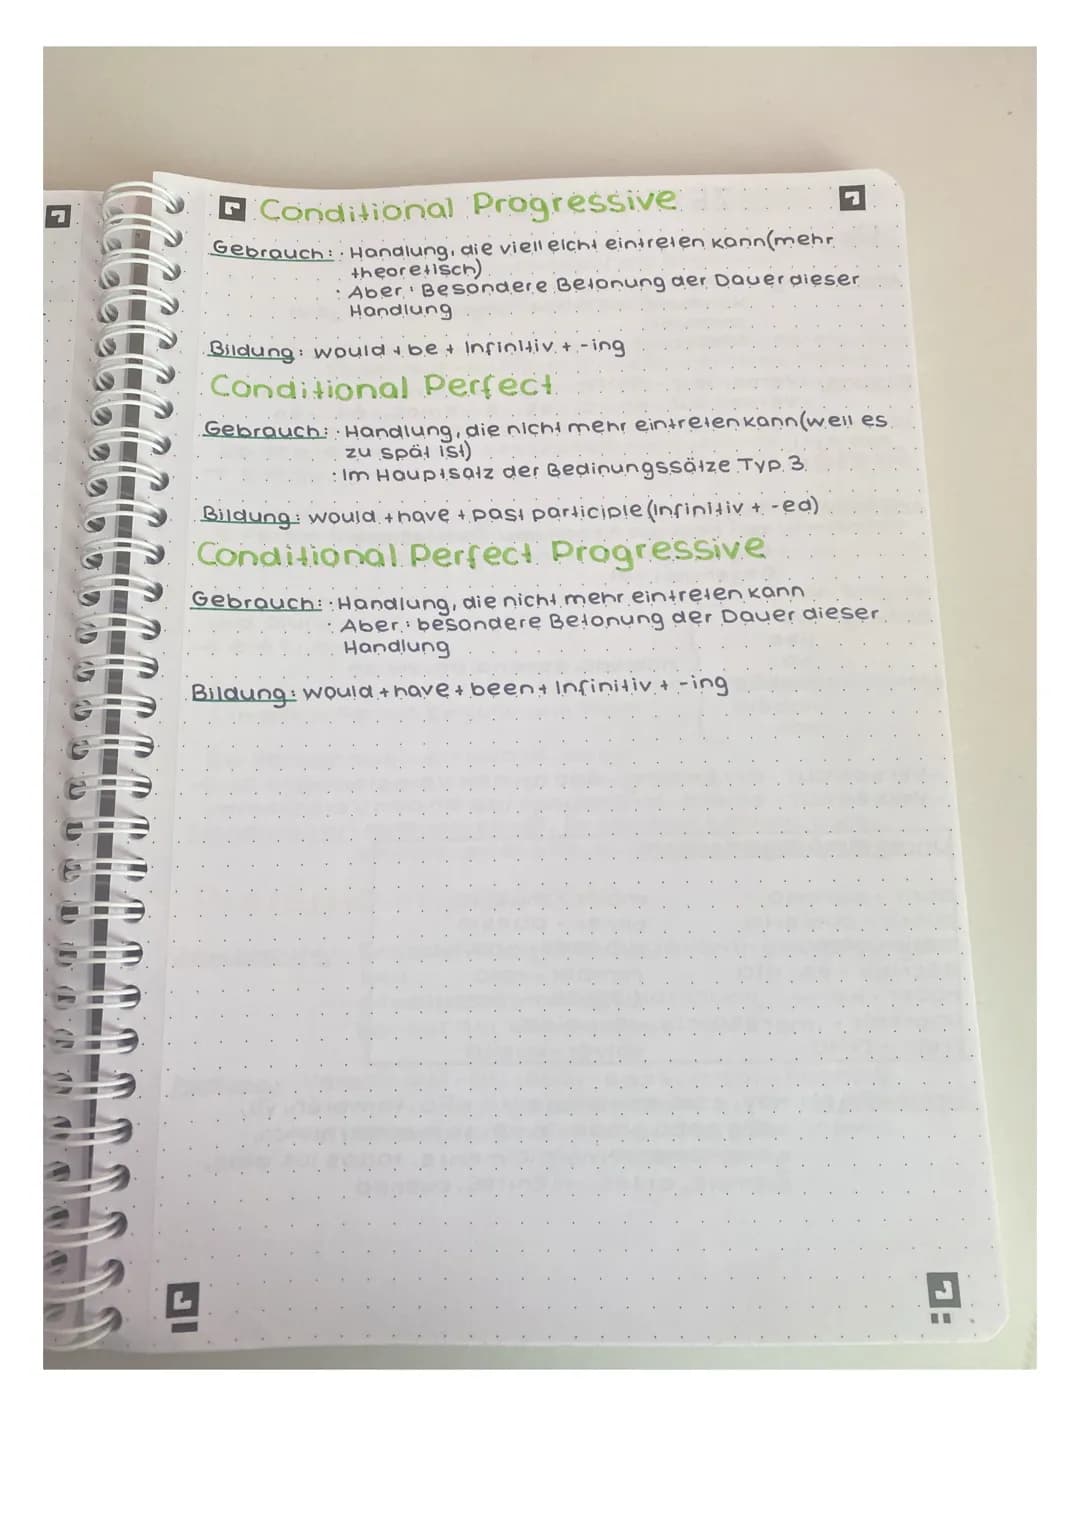 Conditional Progressive
Gebrauch: · Handlung, die vielleicht eintreten kann (mehr
theoretisch)
· Aber: Besondere Betonung der Dauer dieser
Handlung
Bildung: would + be + Infinitiv + -ing
Conditional Perfect
Gebrauch: · Handlung, die nicht mehr eintreten kann (weil es
zu spät ist)
· Im Hauptsatz der Bedinungssätze Typ 3
Bildung: would + have + past participle (Infinitiv + -ed)
Conditional Perfect Progressive
Gebrauch: · Handlung, die nicht mehr eintreten kann
· Aber: besondere Betonung der Dauer dieser
Handlung
Bildung: would + have + been + Infinitiv + -ing